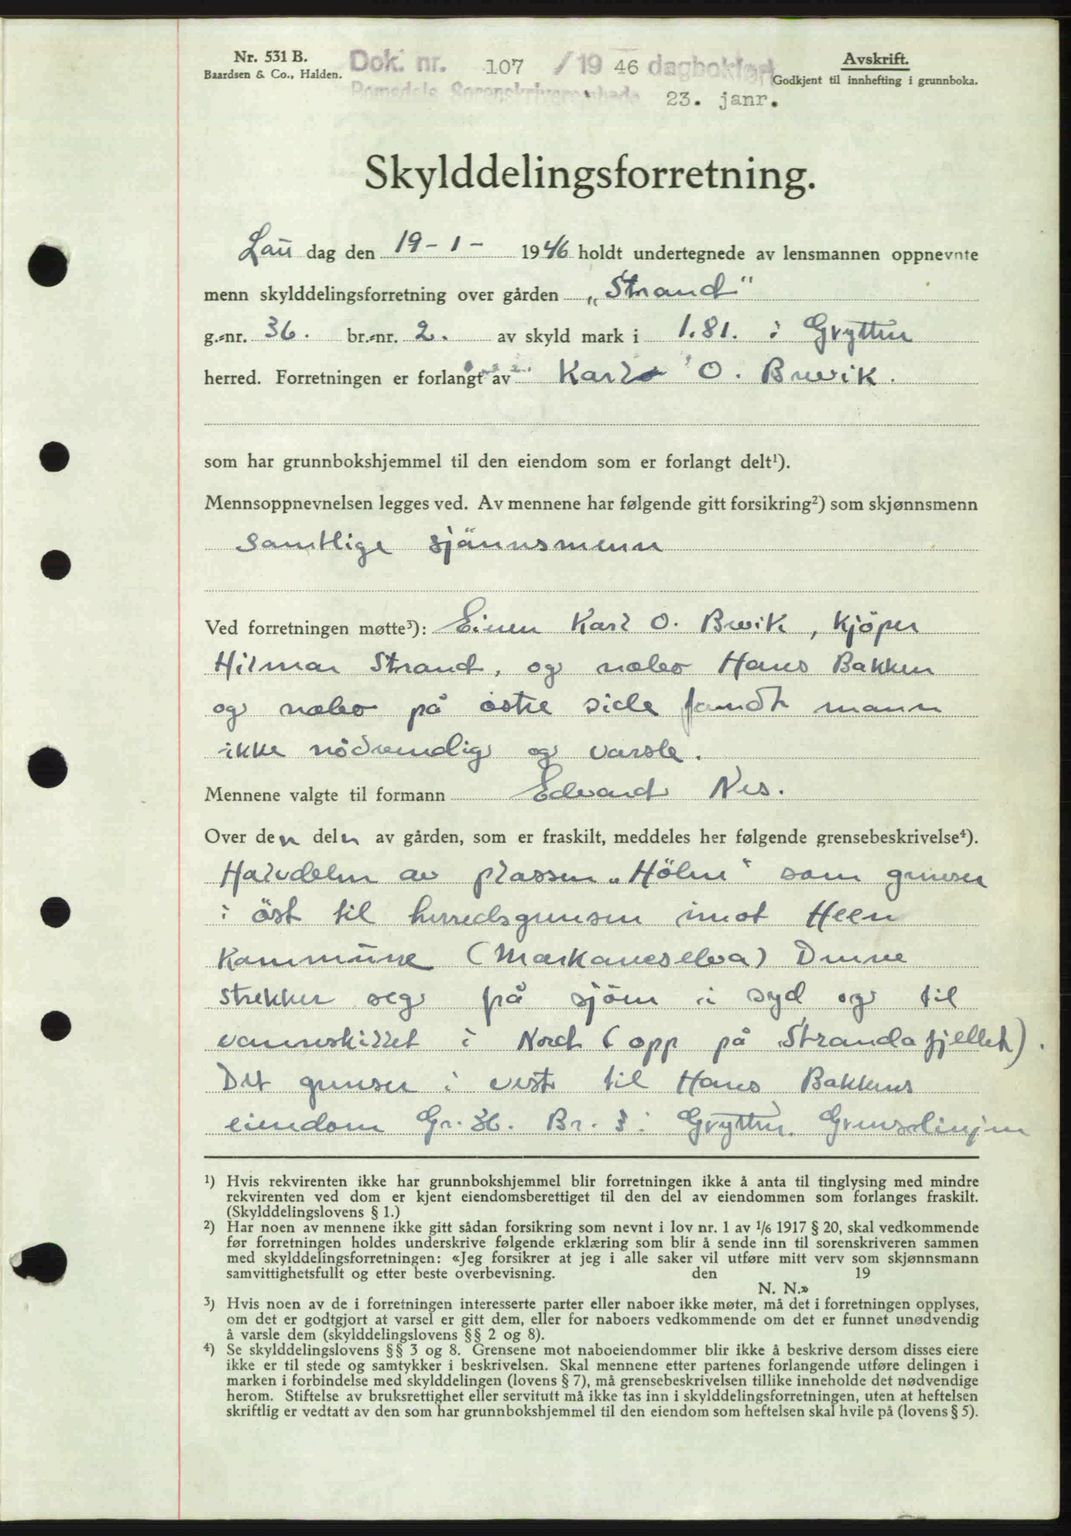 Nr. 531 B.
Baardsen & Co., Halden.
Dok. nr. 107 /19 46 dagbokført
Romsdals Sorenskriverembede 23. janr.
Avskrift.
Godkjent til innhefting i grunnboka.
Skylddelingsforretning.
Lau dag den 19-1- 1946 holdt undertegnede av lensmannen oppnevnte
menn skylddelingsforretning over gården „Strand"
g.-nr. 36. br.-nr. 2. av skyld mark i 1.81. i Grytten
herred. Forretningen er forlangt av Karl O. Brevik.
som har grunnbokshjemmel til den eiendom som er forlangt delt¹).
Mennsoppnevnelsen legges ved. Av mennene har følgende gitt forsikring²) som skjønnsmenn
samtlige sjönnsmenn
Ved forretningen møtte³): Eieren Karl O. Brevik, kjöper
Hilmar Strand, og nabo Hans Bakken
og nabo på östre side fandt mann
ikke nödvendig og varsle.
Mennene valgte til formann Edvard Nes.
Over den deln av gården, som er fraskilt, meddeles her følgende grensebeskrivelse⁴).
Halvdelen av plassen „Hölen" som grenser
i öst til herredsgrensen imot Heen
Kommune (Morkaneselva) Denne
strekker seg frå sjöen i syd og til
vannskillet i Nord (opp på Strandafjellet).
Det grenser i vest til Hans Bakkens
eiendom Gr. 36. Br. 3 i Grytten. Grenselinjen
¹) Hvis rekvirenten ikke har grunnbokshjemmel blir forretningen ikke å anta til tinglysing med mindre
rekvirenten ved dom er kjent eiendomsberettiget til den del av eiendommen som forlanges fraskilt.
(Skylddelingslovens § 1.)
²) Har noen av mennene ikke gitt sådan forsikring som nevnt i lov nr. 1 av 1/6 1917 § 20, skal vedkommende
før forretningen holdes underskrive følgende erklæring som blir å sende inn til sorenskriveren sammen
med skylddelingsforretningen: «Jeg forsikrer at jeg i alle saker vil utføre mitt verv som skjønnsmann
samvittighetsfullt og etter beste overbevisning. den 19
N. N.»
³) Hvis noen av de i forretningen interesserte parter eller naboer ikke møter, må det i forretningen opplyses,
om det er godtgjort at varsel er gitt dem, eller for naboers vedkommende om det er funnet unødvendig
å varsle dem (skylddelingslovens §§ 2 og 8).
⁴) Se skylddelingslovens §§ 3 og 8. Grensene mot naboeiendommer blir ikke å beskrive dersom disses eiere
ikke er til stede og samtykker i beskrivelsen. Skal mennene etter partenes forlangende utføre delingen i
marken i forbindelse med skylddelingen (lovens § 7), må grensebeskrivelsen tillike inneholde det nødvendige
herom. Stiftelse av bruksrettighet eller servitutt må ikke tas inn i skylddelingsforretningen, uten at heftelsen
skriftlig er vedtatt av den som har grunnbokshjemmel til den eiendom som heftelsen skal hvile på (lovens § 5).